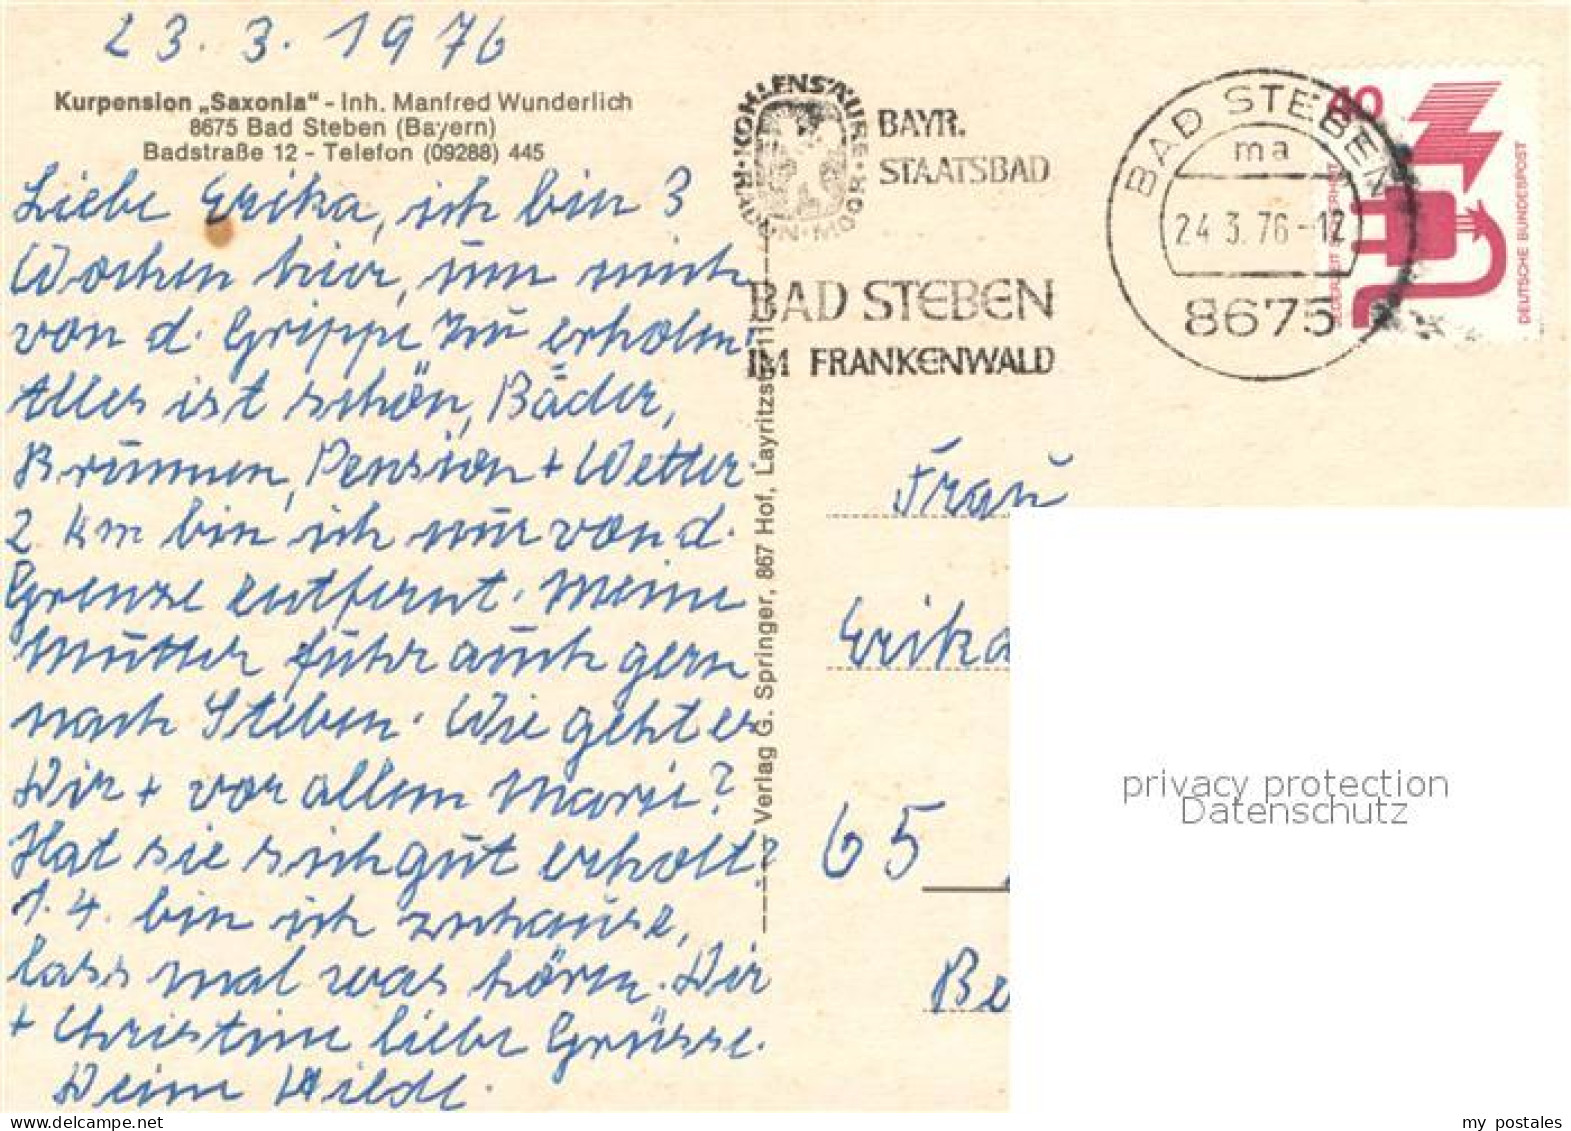 23. 3. 1976
Kurpension „Saxonia“ - Inh. Manfred Wunderlich
8675 Bad Steben (Bayern)
Badstraße 12 - Telefon (09288) 445
Liebe Erika, ich bin 3
Wochen hier, um mich
von d. Grippe zu erholen.
Alles ist schön, Bäder,
Brunnen, Pension + Wetter.
2 km bin ich nur von d.
Grenze entfernt. Meine
Mutter fuhr auch gern
nach Steben. Wie geht es
Dir + vor allem Marie?
Hat sie sich gut erholt?
1. 4. bin ich zuhause,
lass mal was hören. Dir
+ Christine liebe Grüsse.
Deine Hilde.
Verlag G. Springer, 867 Hof, Layritzstr. 11
RADON · KOHLENSÄURE · MOOR
BAYR.
STAATSBAD
BAD STEBEN
IM FRANKENWALD
BAD STEBEN
ma
24.3.76-12
8675
40
JEDERZEIT SICHERHEIT
DEUTSCHE BUNDESPOST
Frau
Erika
65
Be
privacy protection
Datenschutz
my postales